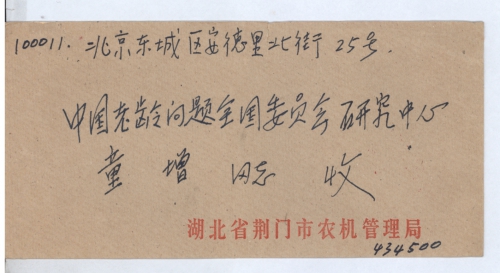 100011. 北京东城区安德里北街25号.
中国老龄问题全国委员会研究中心
童增 同志 收
湖北省荆门市农机管理局
434500